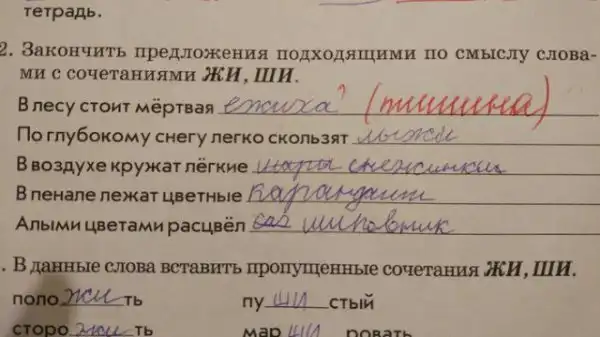 тетрадь.
2. Закончить предложения подходящими по смыслу слова-
ми с сочетаниями ЖИ, ШИ.
В лесу стоит мёртвая ежиха ? (тишина)
По глубокому снегу легко скользят лыжи
В воздухе кружат лёгкие шары снежинки
В пенале лежат цветные карандаши
Алыми цветами расцвёл сад шиповник
. В данные слова вставить пропущенные сочетания ЖИ, ШИ.
поло жи ть пу ши стый
сторо жи ть мар ши ровать